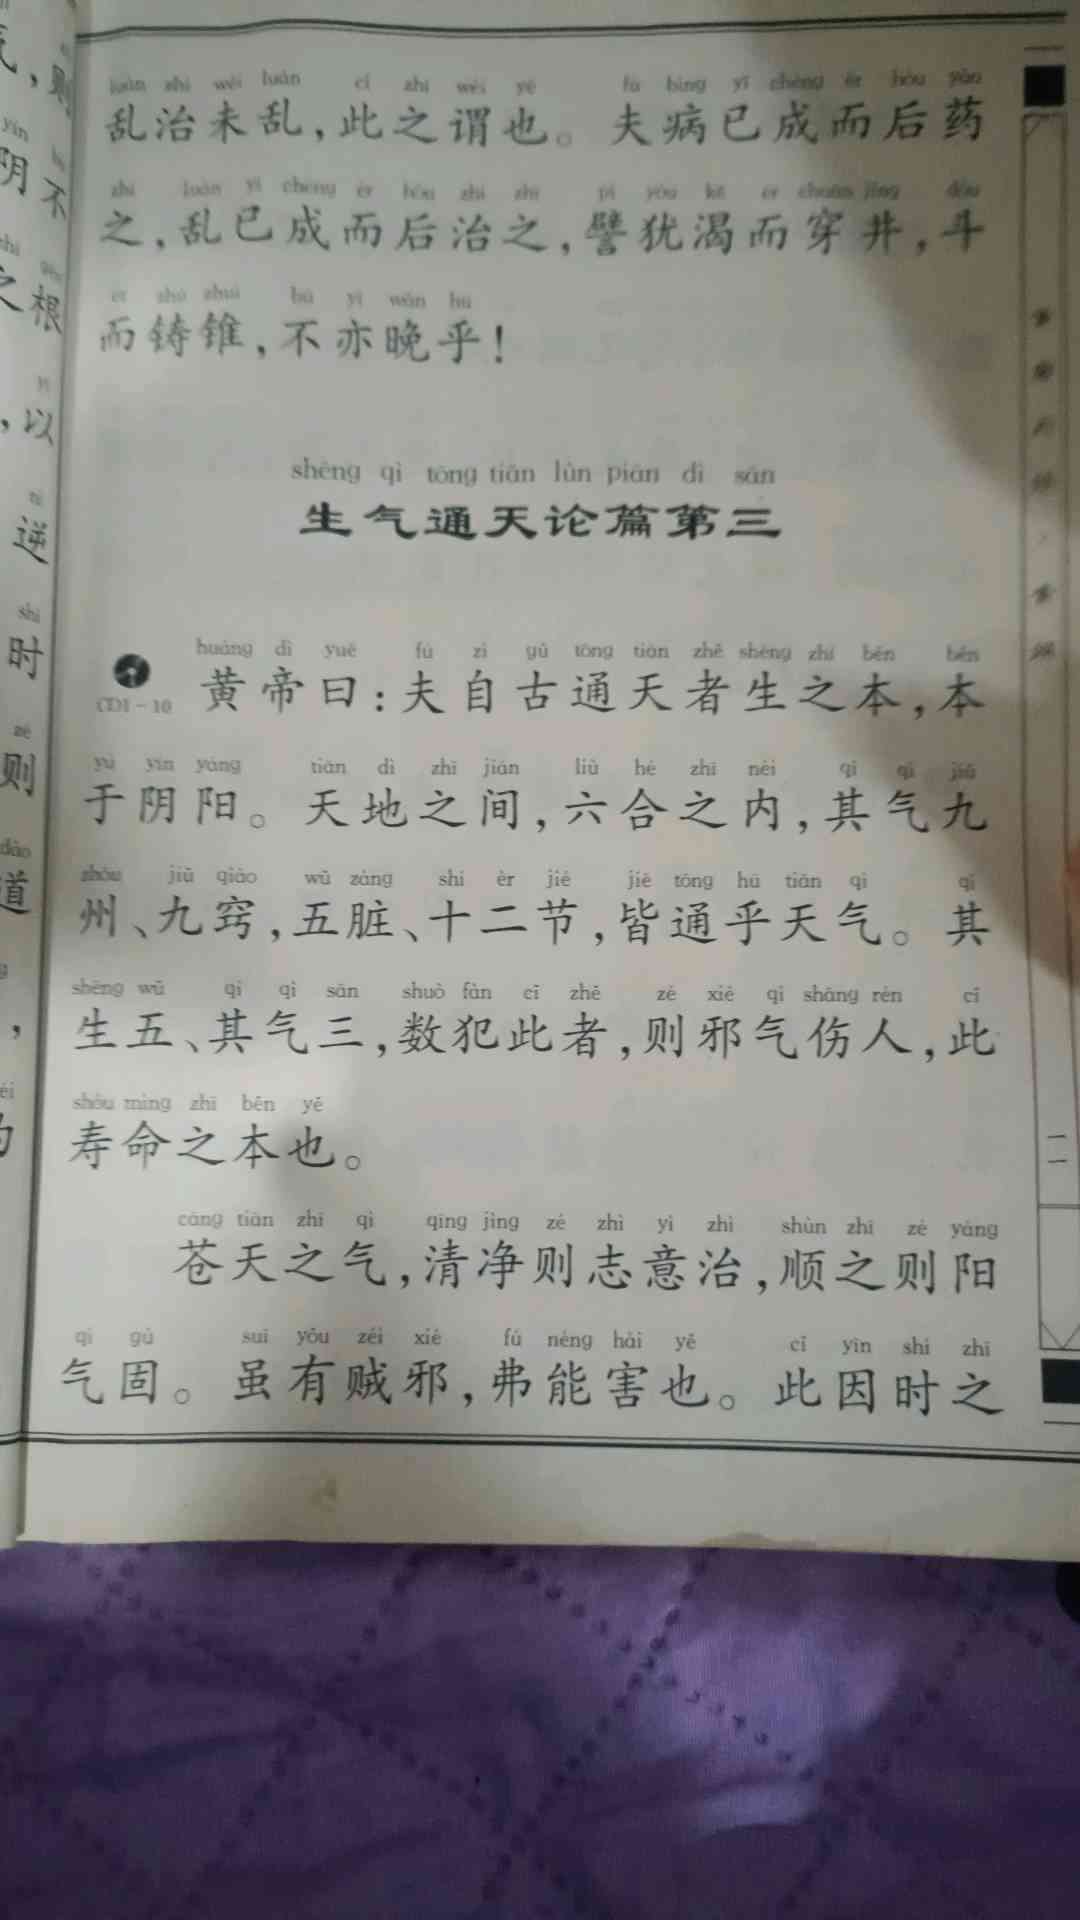 luàn zhì wèi luàn cǐ zhī wèi yě fú bìng yǐ chéng ér hòu yào
乱治未乱，此之谓也。夫病已成而后药
zhī luàn yǐ chéng ér hòu zhì zhī pì yóu kě ér chuān jǐng dòu
之，乱已成而后治之，譬犹渴而穿井，斗
ér zhù zhuī bú yì wǎn hū
而铸锥，不亦晚乎！
shēng qì tōng tiān lùn piān dì sān
生气通天论篇第三
huáng dì yuē fú zì gǔ tōng tiān zhě shēng zhī běn běn
CD1-10 黄帝曰：夫自古通天者生之本，本
yú yīn yáng tiān dì zhī jiān liù hé zhī nèi qí qì jiǔ
于阴阳。天地之间，六合之内，其气九
zhōu jiǔ qiào wǔ zàng shí èr jié jiē tōng hū tiān qì qí
州、九窍，五脏、十二节，皆通乎天气。其
shēng wǔ qí qì sān shuò fàn cǐ zhě zé xié qì shāng rén cǐ
生五、其气三，数犯此者，则邪气伤人，此
shòu mìng zhī běn yě
寿命之本也。
cāng tiān zhī qì qīng jìng zé zhì yì zhì shùn zhī zé yáng
苍天之气，清净则志意治，顺之则阳
qì gù suī yǒu zéi xié fú néng hài yě cǐ yīn shí zhī
气固。虽有贼邪，弗能害也。此因时之
二一